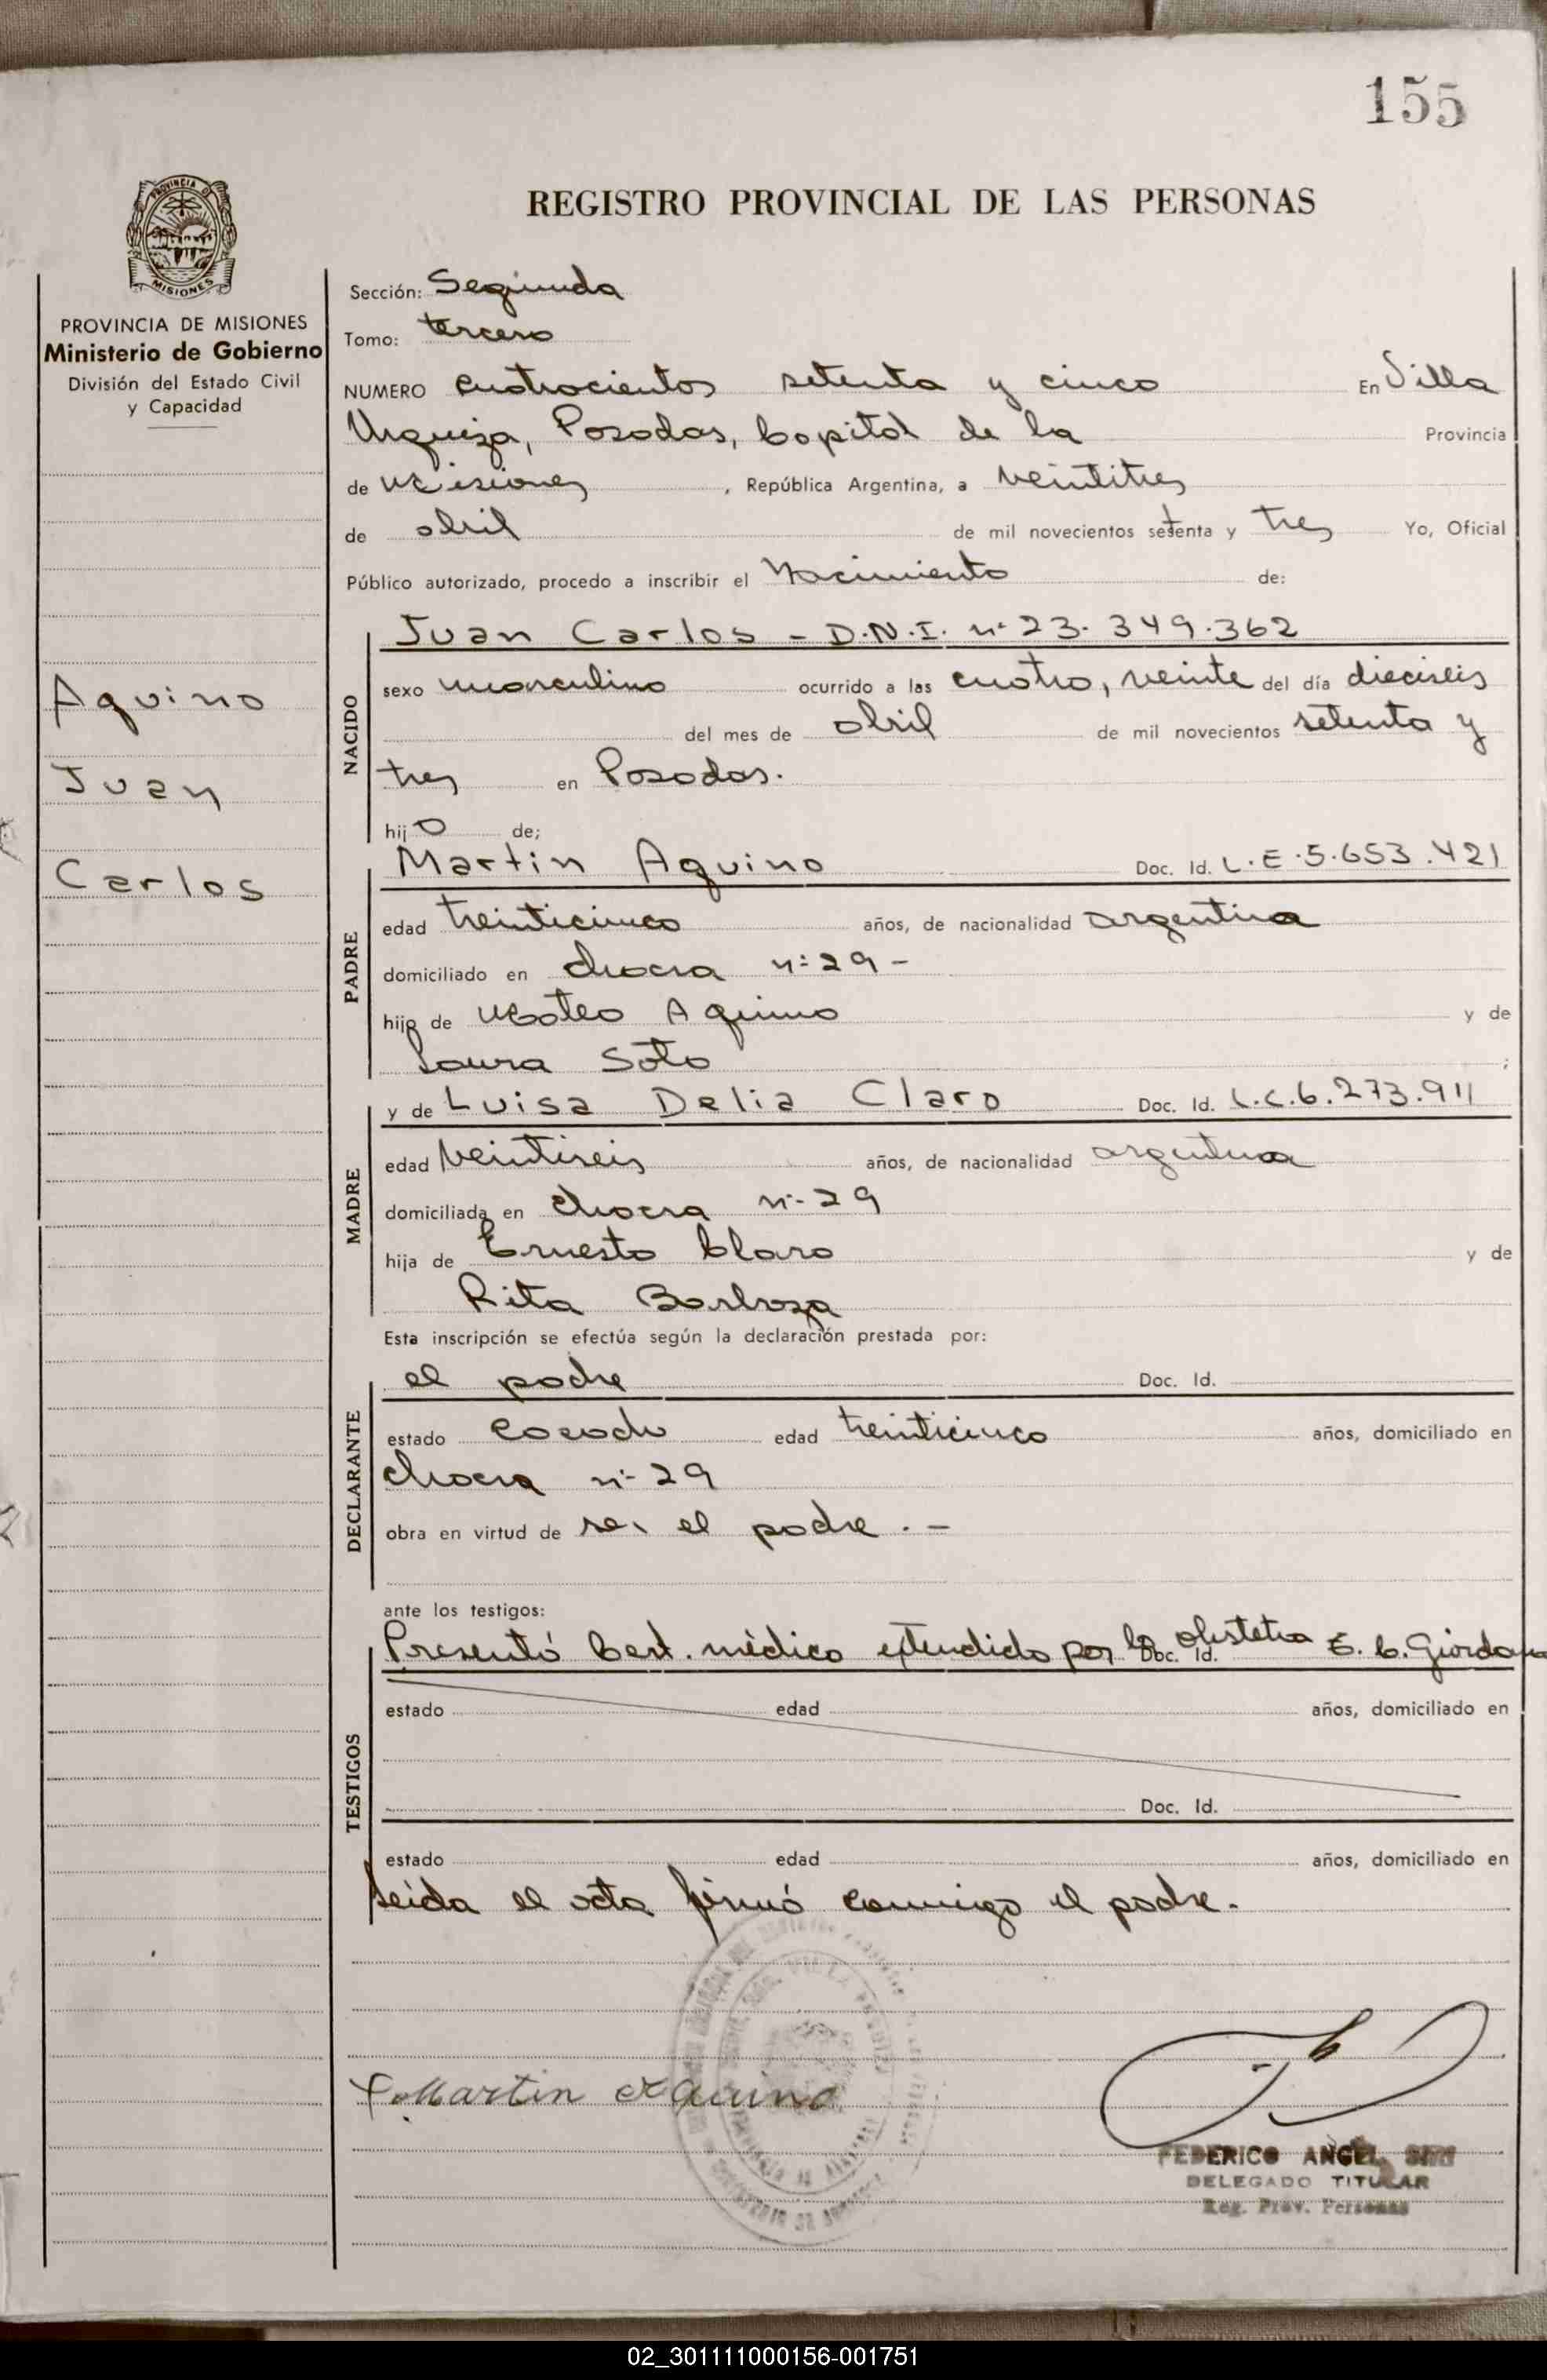 155
REGISTRO PROVINCIAL DE LAS PERSONAS
PROVINCIA DE MISIONES
MISIONES
PROVINCIA DE MISIONES
Ministerio de Gobierno
División del Estado Civil
y Capacidad
Aquino
Juan
Carlos
Sección: Segunda
Tomo: tercero
NUMERO cuatrocientos setenta y cinco En Villa
Urquiza, Posadas, Capital de la Provincia
de Misiones, República Argentina, a veintitres
de abril de mil novecientos setenta y tres Yo, Oficial
Público autorizado, procedo a inscribir el Nacimiento de:
NACIDO
Juan Carlos - D.N.I. nº 23.349.362
sexo masculino ocurrido a las cuatro, veinte del día dieciseis
del mes de abril de mil novecientos setenta y
tres en Posadas.
hijo de;
PADRE
Martin Aquino Doc. Id. L.E.5.653.421
edad treinticinco años, de nacionalidad argentina
domiciliado en chacra nº 29 -
hijo de Mateo Aquino y de
Laura Soto ;
MADRE
y de Luisa Delia Claro Doc. Id. L.C.6.273.911
edad veintiseis años, de nacionalidad argentina
domiciliada en chacra nº 29
hija de Ernesto Claro y de
Rita Barboza
Esta inscripción se efectúa según la declaración prestada por:
DECLARANTE
el padre Doc. Id.
estado casado edad treinticinco años, domiciliado en
chacra nº 29
obra en virtud de ser el padre. -
ante los testigos:
TESTIGOS
Presentó Cert. médico extendido por la obstetra E. C. Giordano
Doc. Id.
estado edad años, domiciliado en
Doc. Id.
estado edad años, domiciliado en
Leída el acta firmó conmigo el padre.
Martin Aquino
FEDERICO ANGEL
DELEGADO TITULAR
Reg. Prov. Personas
02_301111000156-001751